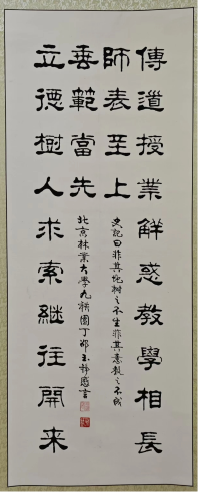 傳道授業解惑教學相長
師表至上
垂範當先
立德樹人求索継往開来
史記曰非其地樹之不生非其意教之不成
北京林業大學九秩園丁